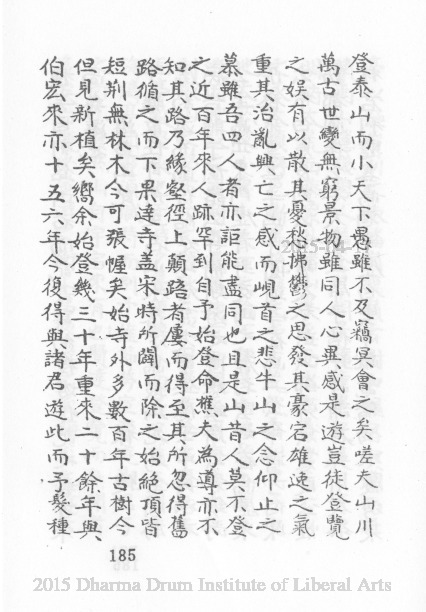 登泰山而小天下愚雖不及竊冥會之矣嗟夫山川
萬古世變無窮景物雖同人心異感是遊豈徒登覽
之娛有以散其憂愁怫鬱之思發其豪宕雄速之氣
重其治亂興亡之感而峴首之悲牛山之念仰止之
慕雖吾四人者亦詎能盡同也且是山昔人莫不登
之近百年來人跡罕到自予始登命樵夫為導亦不
知其路乃緣壑徑上顛踣者屢而得至其所忽得舊
路循之而下果達寺盖宋時所闢而除之始絕頂皆
短荆無林木今可張幄矣始寺外多數百年古樹今
但見新植矣嚮余始登幾三十年重來二十餘年與
伯宏來亦十五六年今復得與諸君遊此而予髮種
185
2015 Dharma Drum Institute of Liberal Arts